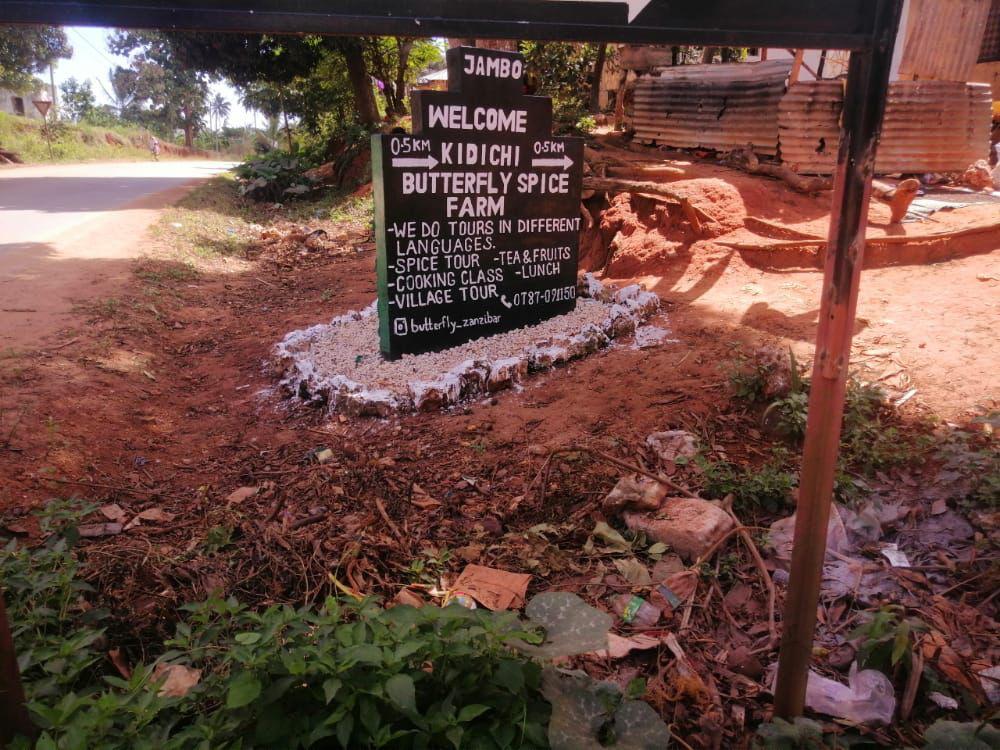 JAMBO
WELCOME
0.5KM KIDICHI 0.5KM
BUTTERFLY SPICE
FARM
-WE DO TOURS IN DIFFERENT
LANGUAGES.
-SPICE TOUR -TEA & FRUITS
-COOKING CLASS -LUNCH
-VILLAGE TOUR 0787-091150
butterfly_zanzibar